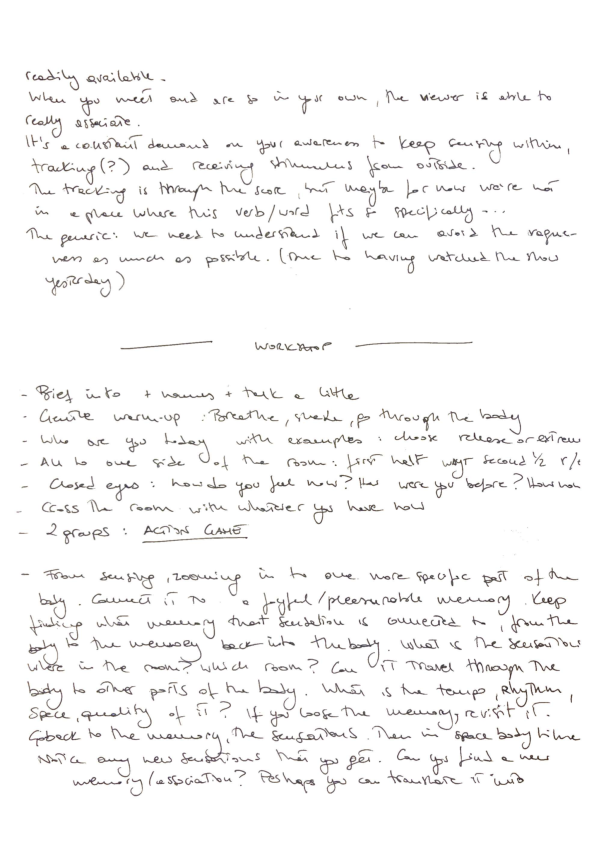 readily available.
When you meet and are so in your own, the viewer is able to
really associate.
It's a constant demand on your awareness to keep sensing within,
tracking(?) and receiving stimulus from outside.
The tracking is through the score, but maybe for now we're not
in a place where this verb/word fits so specifically...
The generic: we need to understand if we can avoid the vague-
ness as much as possible. (Due to having watched the show
yesterday)
WORKSHOP
- Brief intro + names + talk a little
- Gentle warm-up: Breathe, shake, go through the body
- Who are you today with examples: choose release or
- All to one side of the room: first half second 1/2 r/
- Closed eyes: how do you feel now? How were you before? How now
- Cross the room with whatever you have now
- 2 groups: ACTION GAME
- From sensing, zooming in to one more specific part of the
body. Connect it to a joyful/pleasurable memory. Keep
finding what memory that sensation is connected to, from the
body to the memory back into the body. What is the sensation
in the room? Which room? Can it travel through the
body to other parts of the body. What is the tempo, rhythm,
space, quality of it? If you loose the memory, revisit it.
Go back to the memory, the sensations. Then in space body time
Notice any new sensations that you get. Can you find a new
memory/association? Perhaps you can translate it into